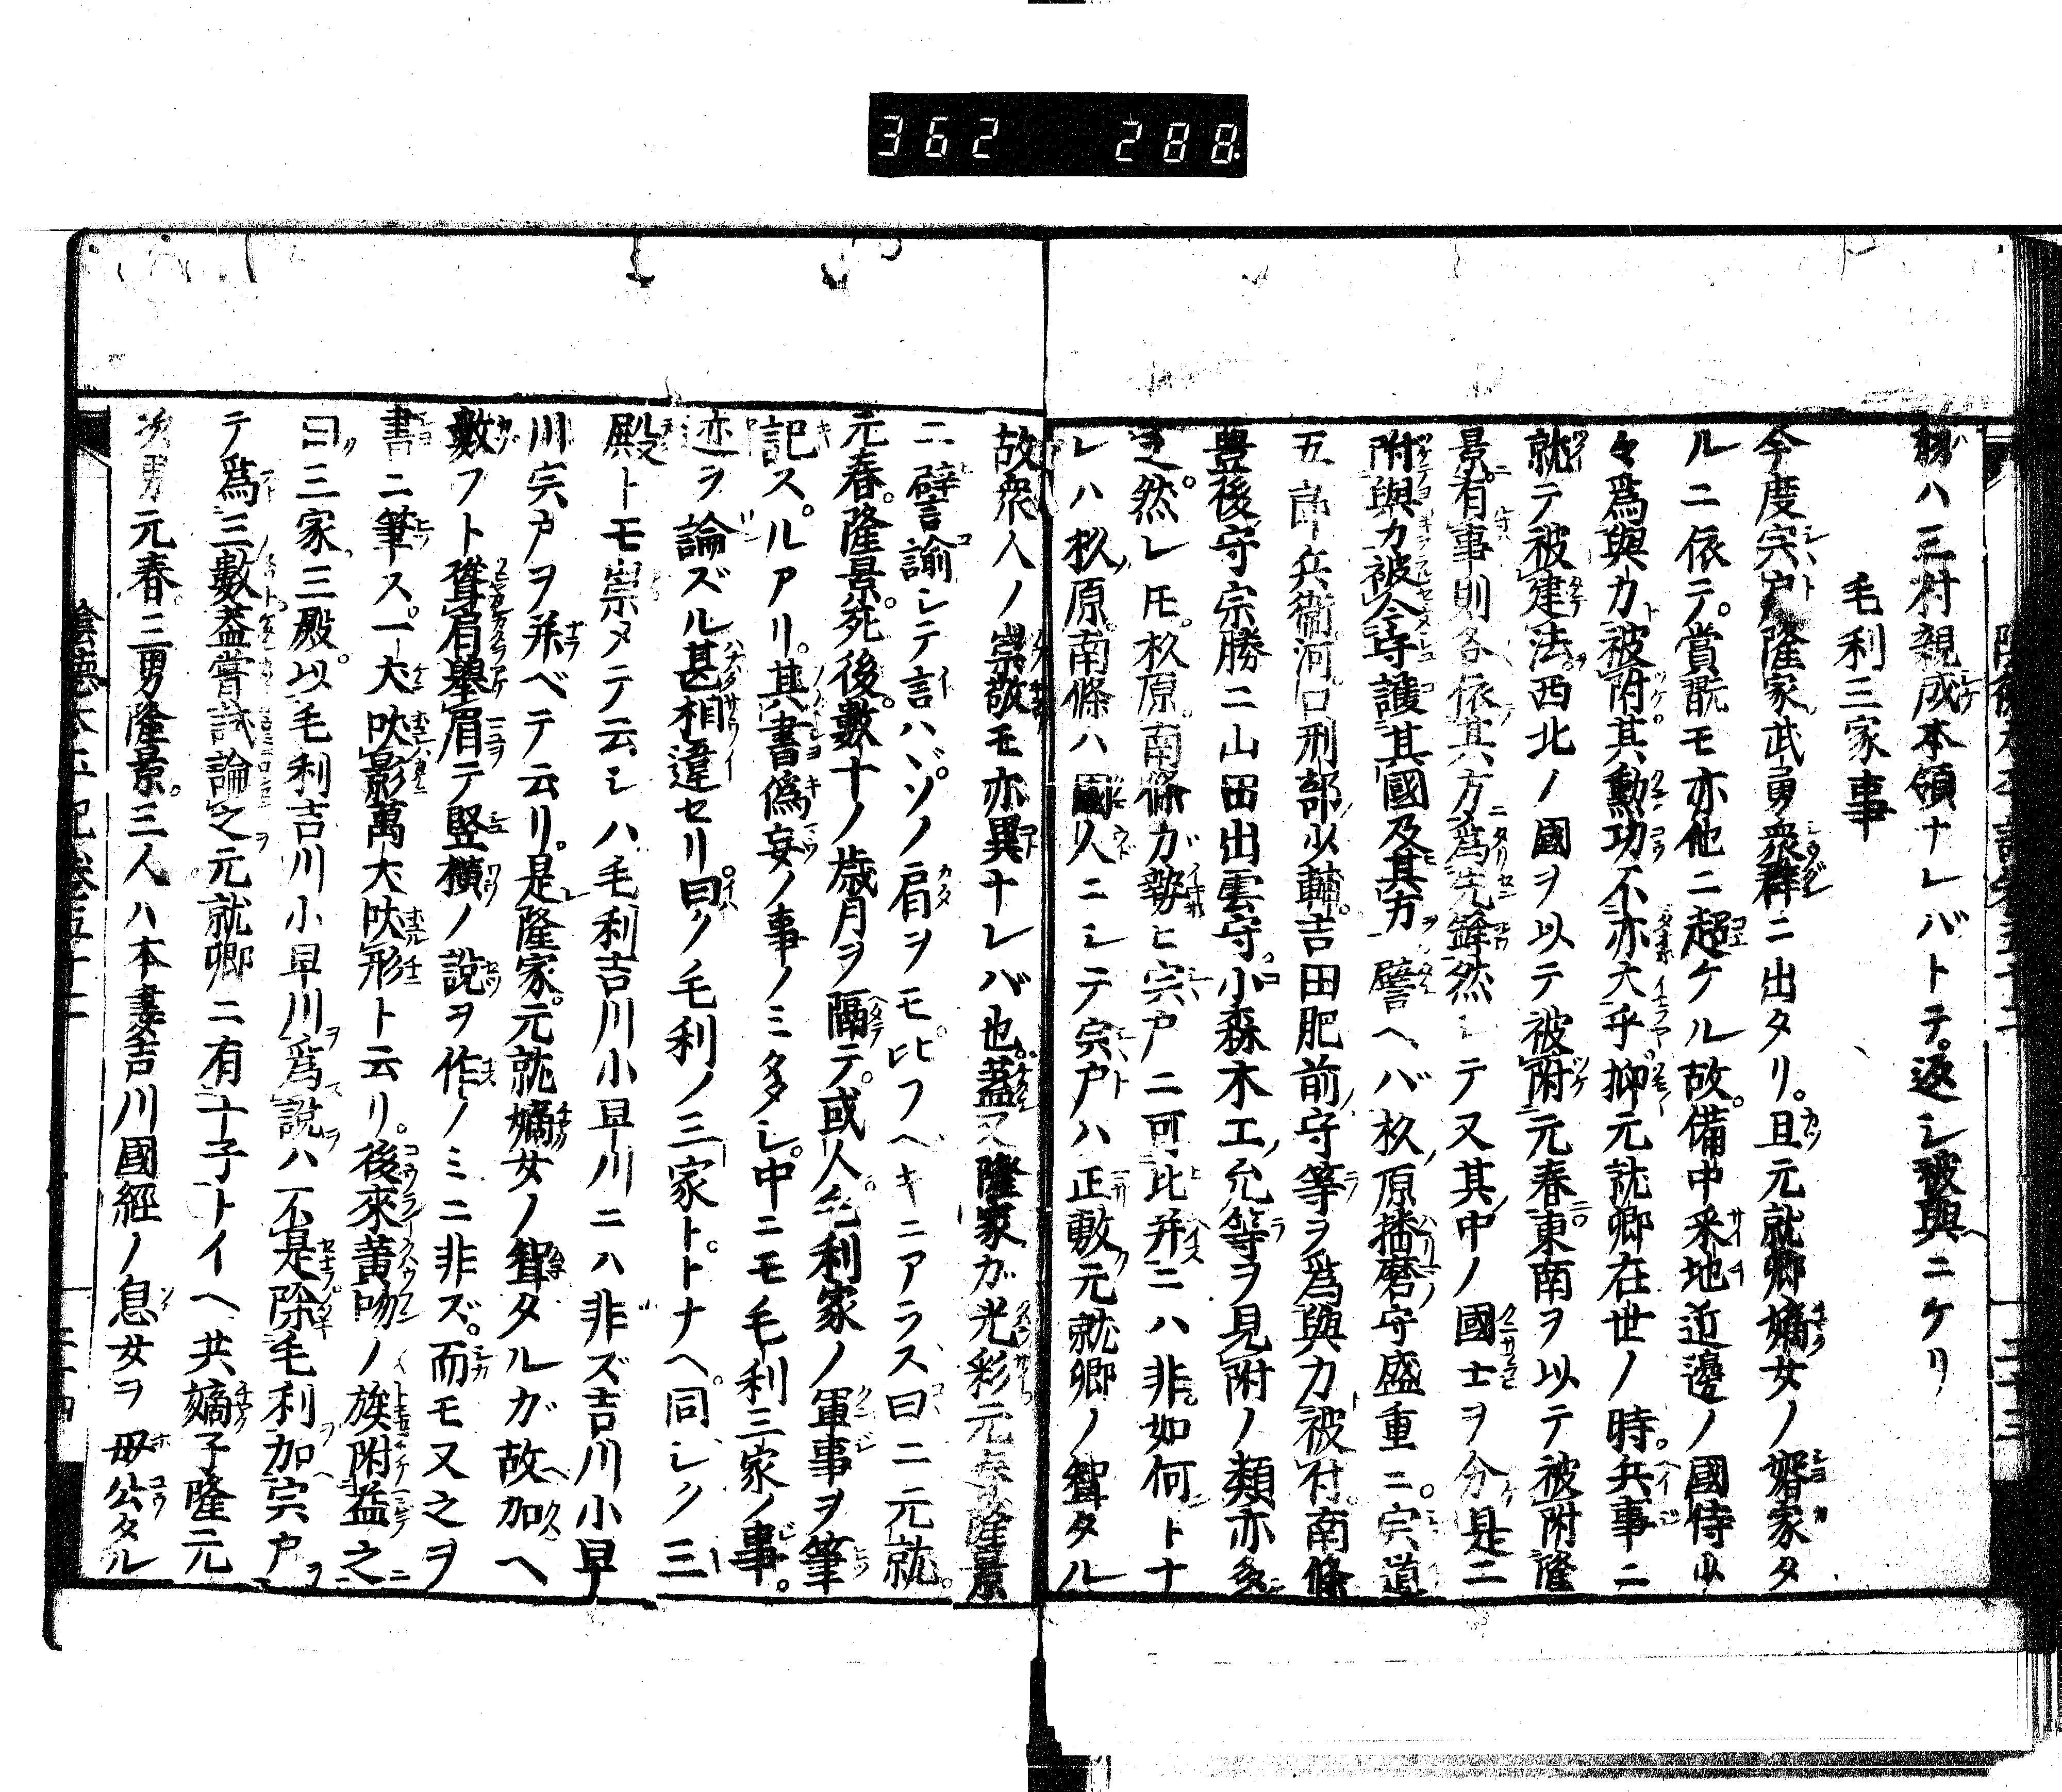 362 288
ハ三村親成本領ナレバトテ返シ被與ニケリ
毛利三家事
今度宍戸隆家武勇衆群ニ出タリ。且元就卿嫡女ノ婿家タ
ルニ依テ。賞翫モ亦他ニ超ケル故。備中采地近邊ノ國侍少
々爲與力被附。其勲功不亦大乎。抑元就卿在世ノ時。兵事ニ
就テ被建法。西北ノ國ヲ以テ被附元春東南ヲ以テ被附隆
景。有事則各依其方爲先鋒然シテ又其中ノ國士ヲ分是ニ
附與力被令守護其國及其方譬ヘバ杦原播磨守盛重ニ。宍道
五郎兵衞河口刑部少輔。吉田肥前守等ヲ爲與力被付。南條
豊後守宗勝ニ山田出雲守。小森木工允等ヲ見附ノ類亦多
之。然レ𪜈。杦原。南條ガ勢ヒ宍戸ニ可比并ニハ非。如何トナ
レハ杦原。南條ハ國人ニシテ宍戸ハ正敷元就卿ノ聟タル
故衆人ノ崇敬モ亦異ナレバ也。蓋又隆家ガ光彩元春隆景
ニ譬諭シテ言ハヾソノ肩ヲモ比フヘキニアラス曰ニ元就。
元春。隆景。死後。數十ノ歳月ヲ隔テ。或人毛利家ノ軍事ヲ筆
記ス。ルアリ。其書偽妄ノ事ノミ多シ。中ニモ毛利三家ノ事。
迹ヲ論ズル甚相違セリ。曰ノ毛利ノ三家ト。トナヘ。同シク三
殿トモ崇タテ云シハ毛利吉川小早川ニハ非ズ吉川小早
川宍戸ヲ并ベテ云リ。是隆家。元就嫡女ノ聟タルガ故加ヘ
數フト聳肩擧眉テ竪横ノ説ヲ作ノミニ非ズ。而モ又之ヲ
書ニ筆ス。一犬吠影萬犬吠形ト云リ。後來黄吻ノ族附益之
曰三家三殿。以毛利吉川小早川爲説ハ不是除毛利加宍戸
テ爲三數蓋嘗試論之元就卿ニ有十子トイヘ共嫡子隆元
次男元春。三男隆景。三人ハ本妻吉川國經ノ息女ヲ母公タル